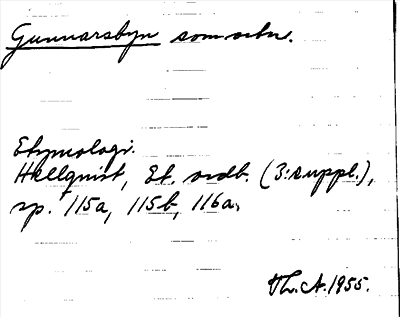 Gunnarsbyn som ortn.
Etymologi.
Hellquist, Et. ordb. (3:suppl.),
sp. 115a, 115b, 116a.
Th. A. 1955.